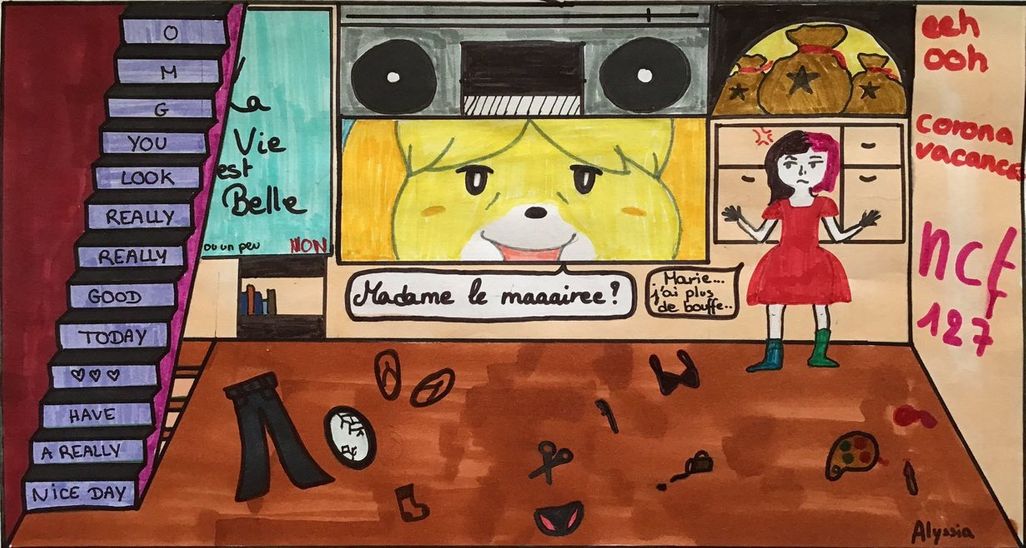 O
M
G
YOU
LOOK
REALLY
REALLY
GOOD
TODAY
♡♡♡
HAVE
A REALLY
NICE DAY
La
Vie
est
Belle
ou un peu NON
Madame le maaairee?
Marie...
j'ai plus
de bouffe..
eeh
ooh
corona
vacances
nct
127
Alyssia